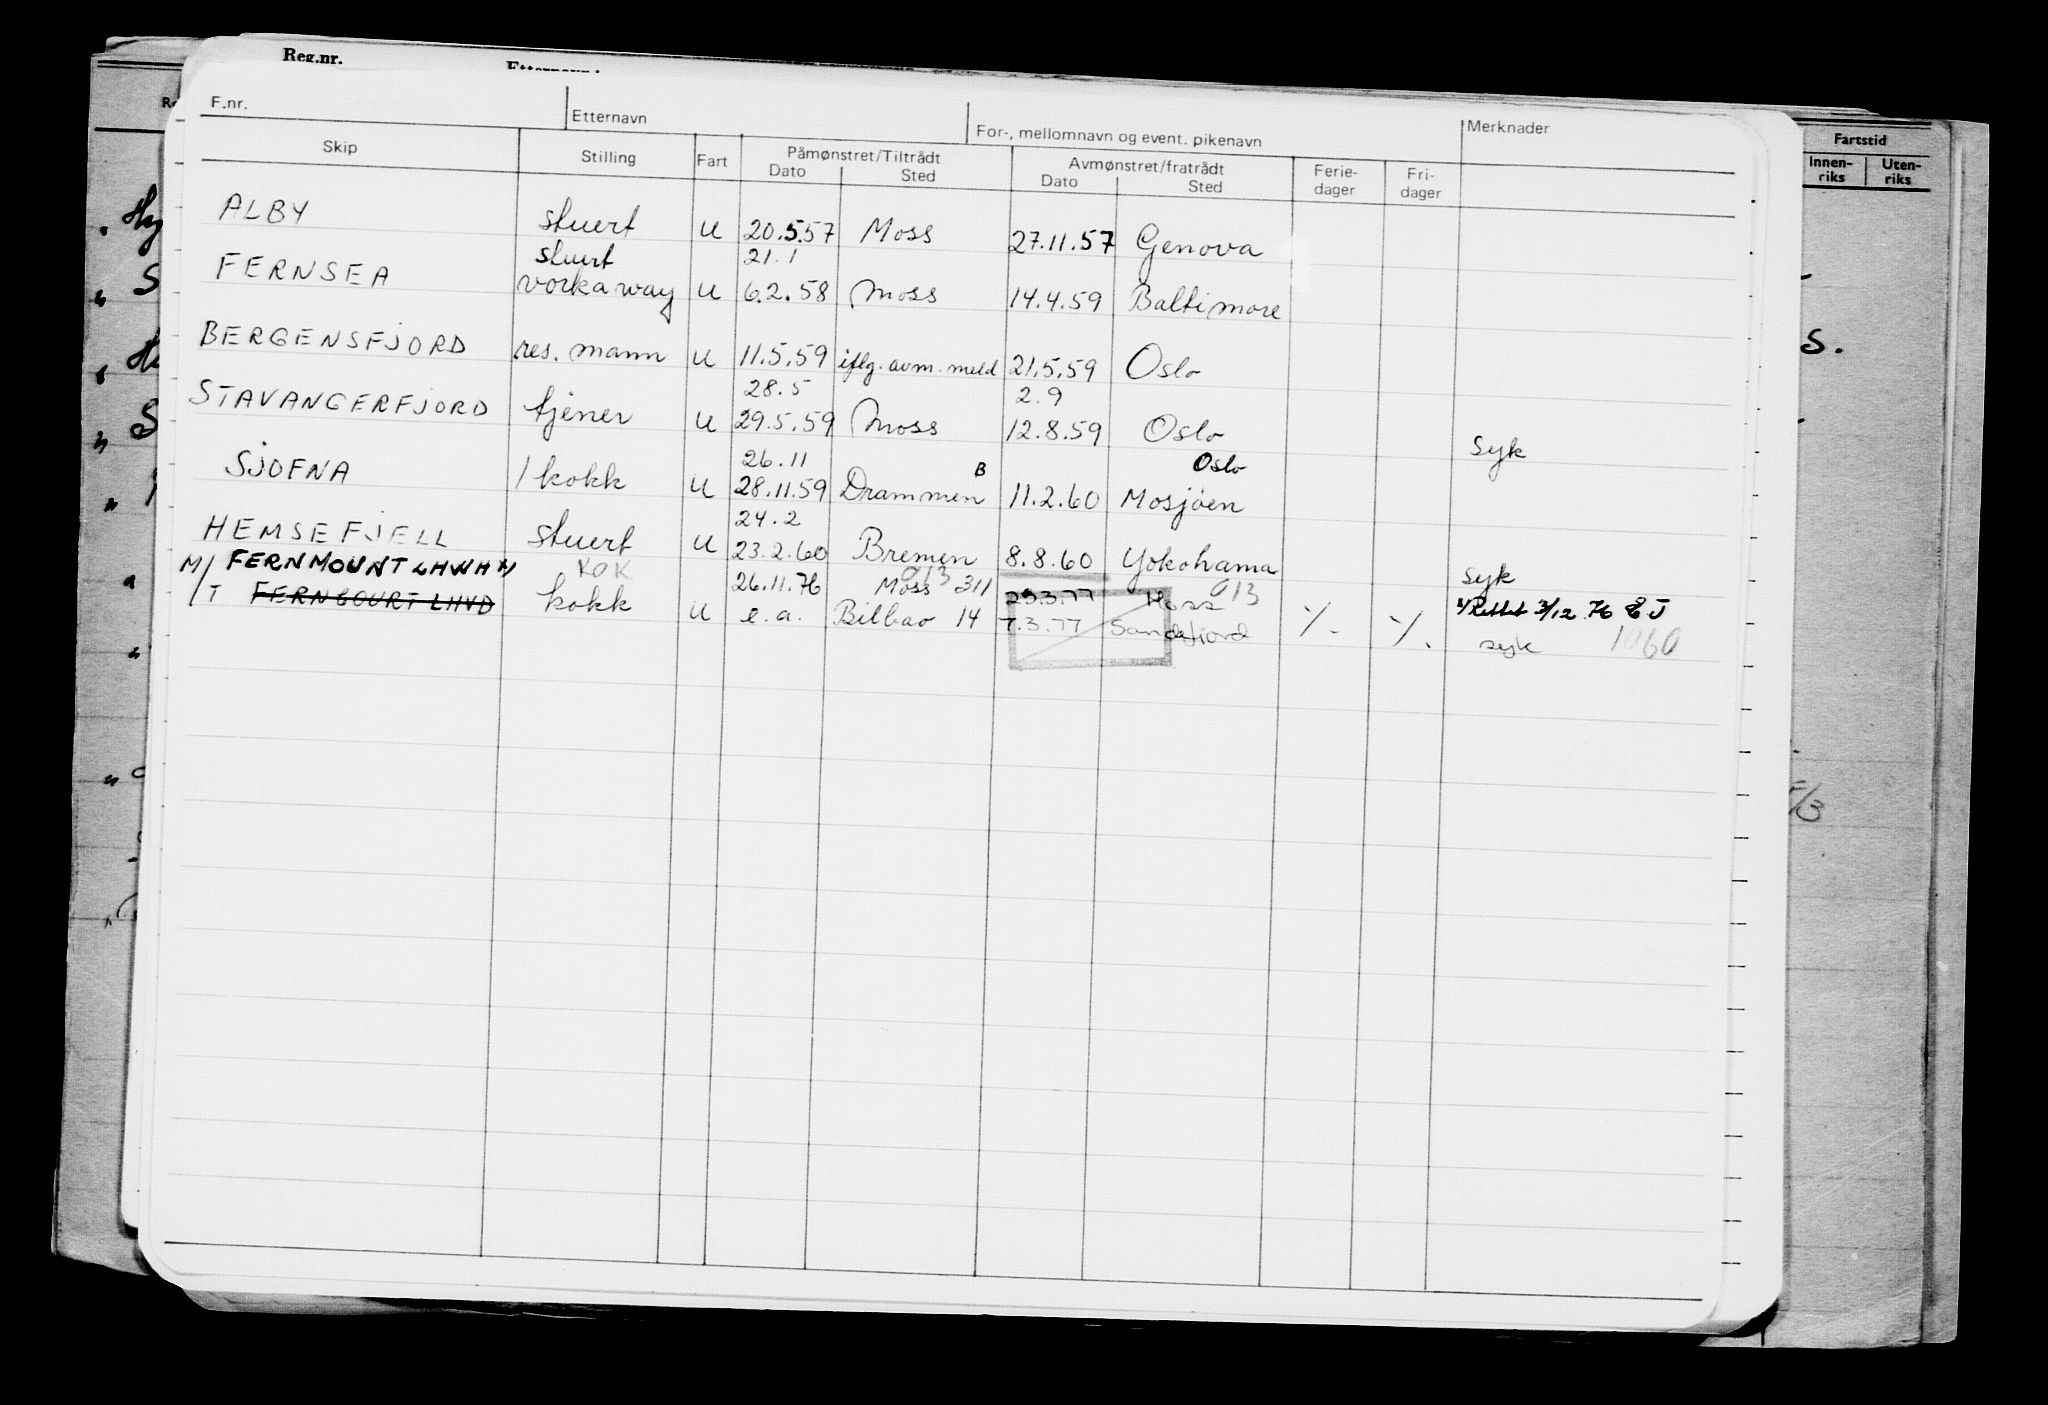 Reg.nr.
F.nr. Etternavn For-, mellomnavn og event. pikenavn Merknader Fartstid
Skip Stilling Fart Påmønstret/Tiltrådt Avmønstret/fratrådt Ferie-dager Fri-dager Innen-riks Uten-riks
Dato Sted Dato Sted
ALBY stuert U 20.5.57 Moss 27.11.57 Genova
stuert 21.1
FERNSEA vorkaway U 6.2.58 Moss 14.4.59 Baltimore
BERGENSFJORD res. mann U 11.5.59 iflg. avm. meld 21.5.59 Oslo
28.5 2.9
STAVANGERFJORD tjener U 29.5.59 Moss 12.8.59 Oslo Syk
26.11 B Oslo
SJOFNA 1 kokk U 28.11.59 Drammen 11.2.60 Mosjøen
24.2
HEMSEFJELL stuert U 23.2.60 Bremen 8.8.60 Yokohama syk
M/ FERNMOUNT LHWH 1) KOK 26.11.76 Moss 013 311 29.3.77 Moss 013 1) Rettet 3/12.76 EJ
T FERNCOURT LHVD kokk U e.a. Bilbao 14 7.3.77 Sandefjord ./. ./. syk 1060